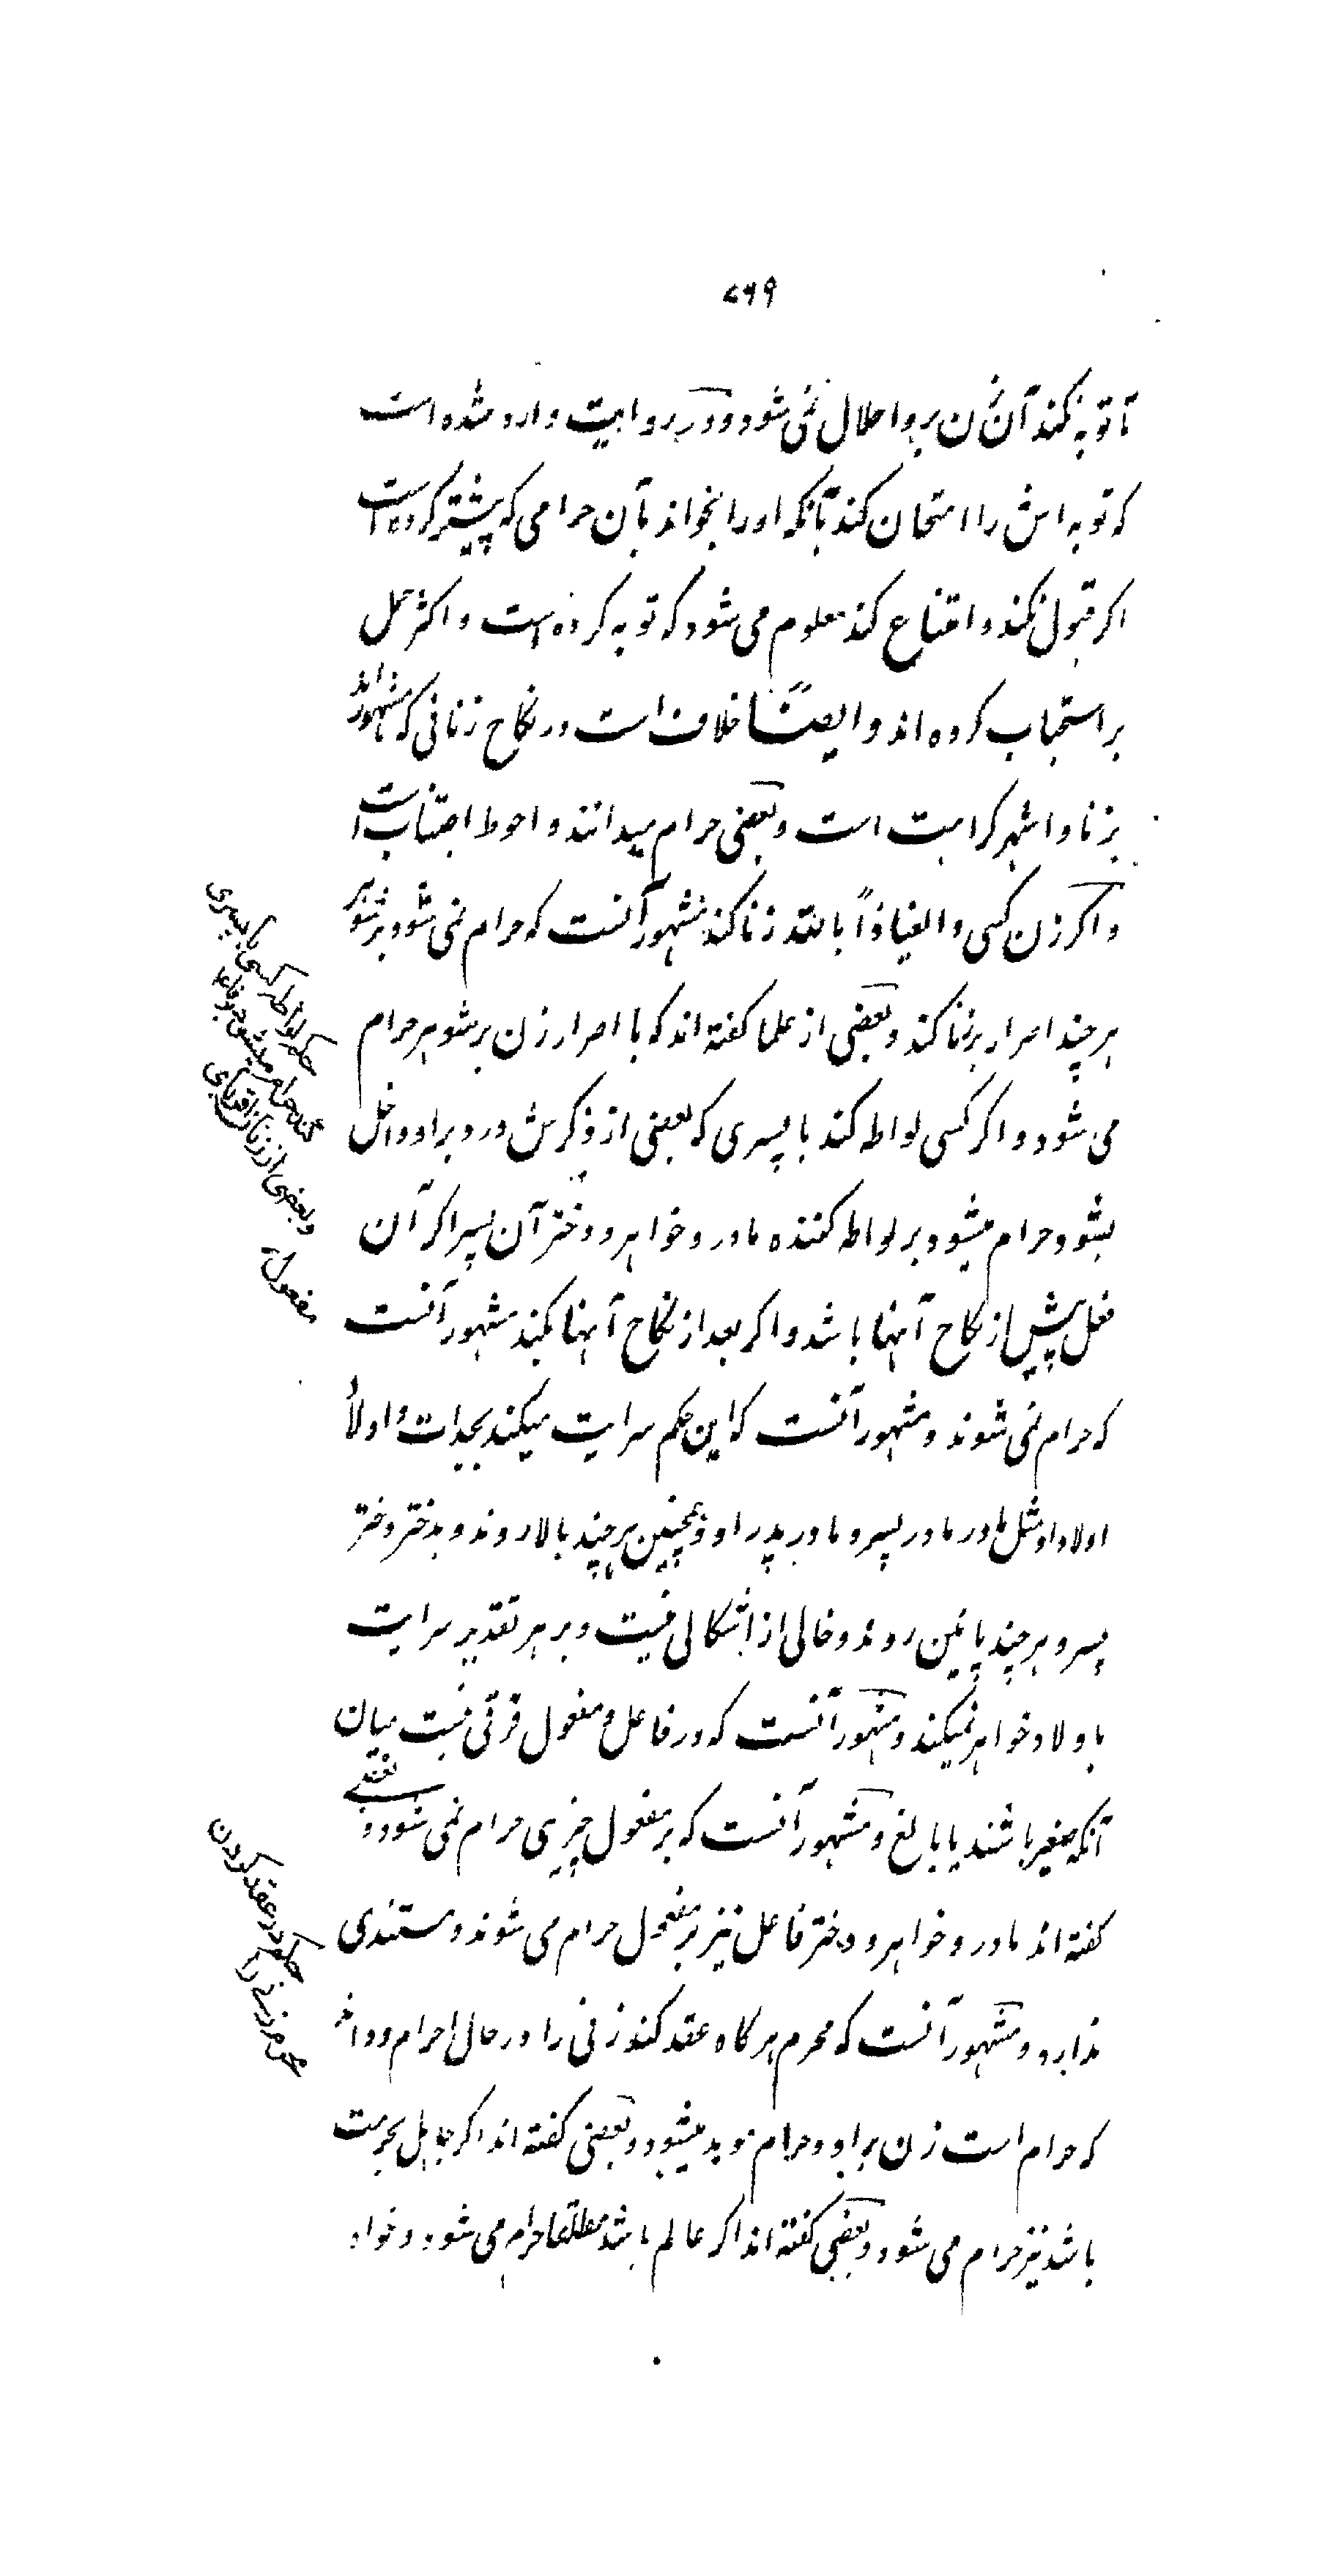 ۷۶۹
تا توبه نکند آن زن بر او حلال نمی شود و در روایت وارد شده است
که توبه اش را امتحان کند بآنکه او را بخواند بآن حرامی که پیشتر کرده است
اکر قبول نکند و امتناع کند معلوم می شود که توبه کرده است و اکثر حمل
بر استحباب کرده اند و ایضاً خلاف است در نکاح زنانی که مشهور اند
بزنا و اشهر کراهت است و بعضی حرام میدانند و احوط اجتناب است
و اکر زن کسی و العیاذاً بالله زنا کند مشهور آنست که حرام نمی شود بر شوهر
هر چند اصرار بر زنا کند و بعضی از علما کفته اند که با اصرار زن بر شوهر حرام
می شود و اکر کسی لواطه کند با پسری که بعضی از ذکرش در دبر او داخل
بشود حرام میشود بر لواطه کننده مادر و خواهر و دختر آن پسر اکر آن
فعل پیش از نکاح آنها باشد و اکر بعد از نکاح آنها بکند مشهور آنست
که حرام نمی شوند و مشهور آنست که این حکم سرایت میکند بجدات و اولاد
اولاد او مثل مادر مادر پسر و مادر پدر او و همچنین هر چند بالا روند و بدختر دختر
پسر و هر چند پائین روند و خالی از اشکالی نیست و بر هر تقدیر سرایت
باولاد خواهر نمیکند و مشهور آنست که در فاعل و مفعول فرقی نیست میان
آنکه صغیر باشند یا بالغ و مشهور آنست که بر مفعول چیزی حرام نمی شود و بعضی
کفته اند مادر و خواهر و دختر فاعل نیز بر مفعول حرام می شوند و مستندی
ندارد و مشهور آنست که محرم هر کاه عقد کند زنی را در حال احرام و داند
که حرام است زن بر او حرام موبد میشود و بعضی کفته اند اکر جاهل بحرمت
باشد نیز حرام می شود و بعضی کفته اند اکر عالم باشد مطلقا حرام می شود و خواه
حکم لواطه کسی با پسری
کند حرام میشود بر فاعل
و بعضی از زنان اقربای
مفعول
حکم در عقد کردن
محرم زنی را